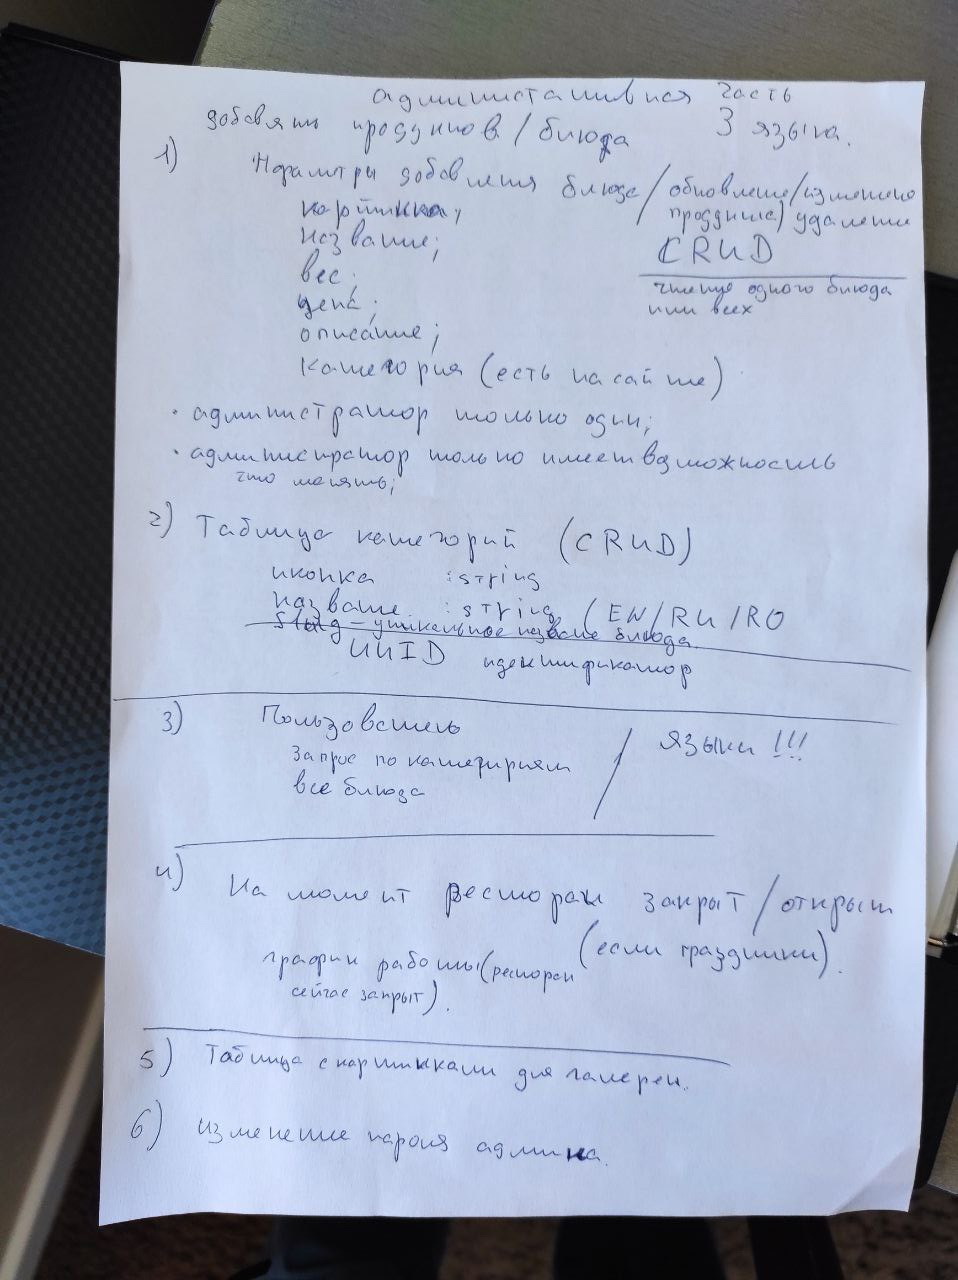 административная часть
добавять продуктов / блюда 3 языка.
1) Параметры добавления блюда / обновление / изменение
продукции) удаление
картинка;
название;
CRUD
вес;
чтение одного блюда
или всех
цена;
описание;
категория (есть на сайте)
· администратор только один;
· администратор только имеет возможность
что менять;
2) Таблица категорий (CRUD)
иконка : string
название : string (EN / RU / RO
slug - уникальное название блюда.
UUID идентификатор
3) Пользователь
языки !!!
запрос по категориям
все блюда
4) На момент ресторан закрыт / открыт
(если праздники).
график работы (ресторан
сейчас закрыт).
5) Таблица с картинками для галереи.
6) изменение пароля админа.